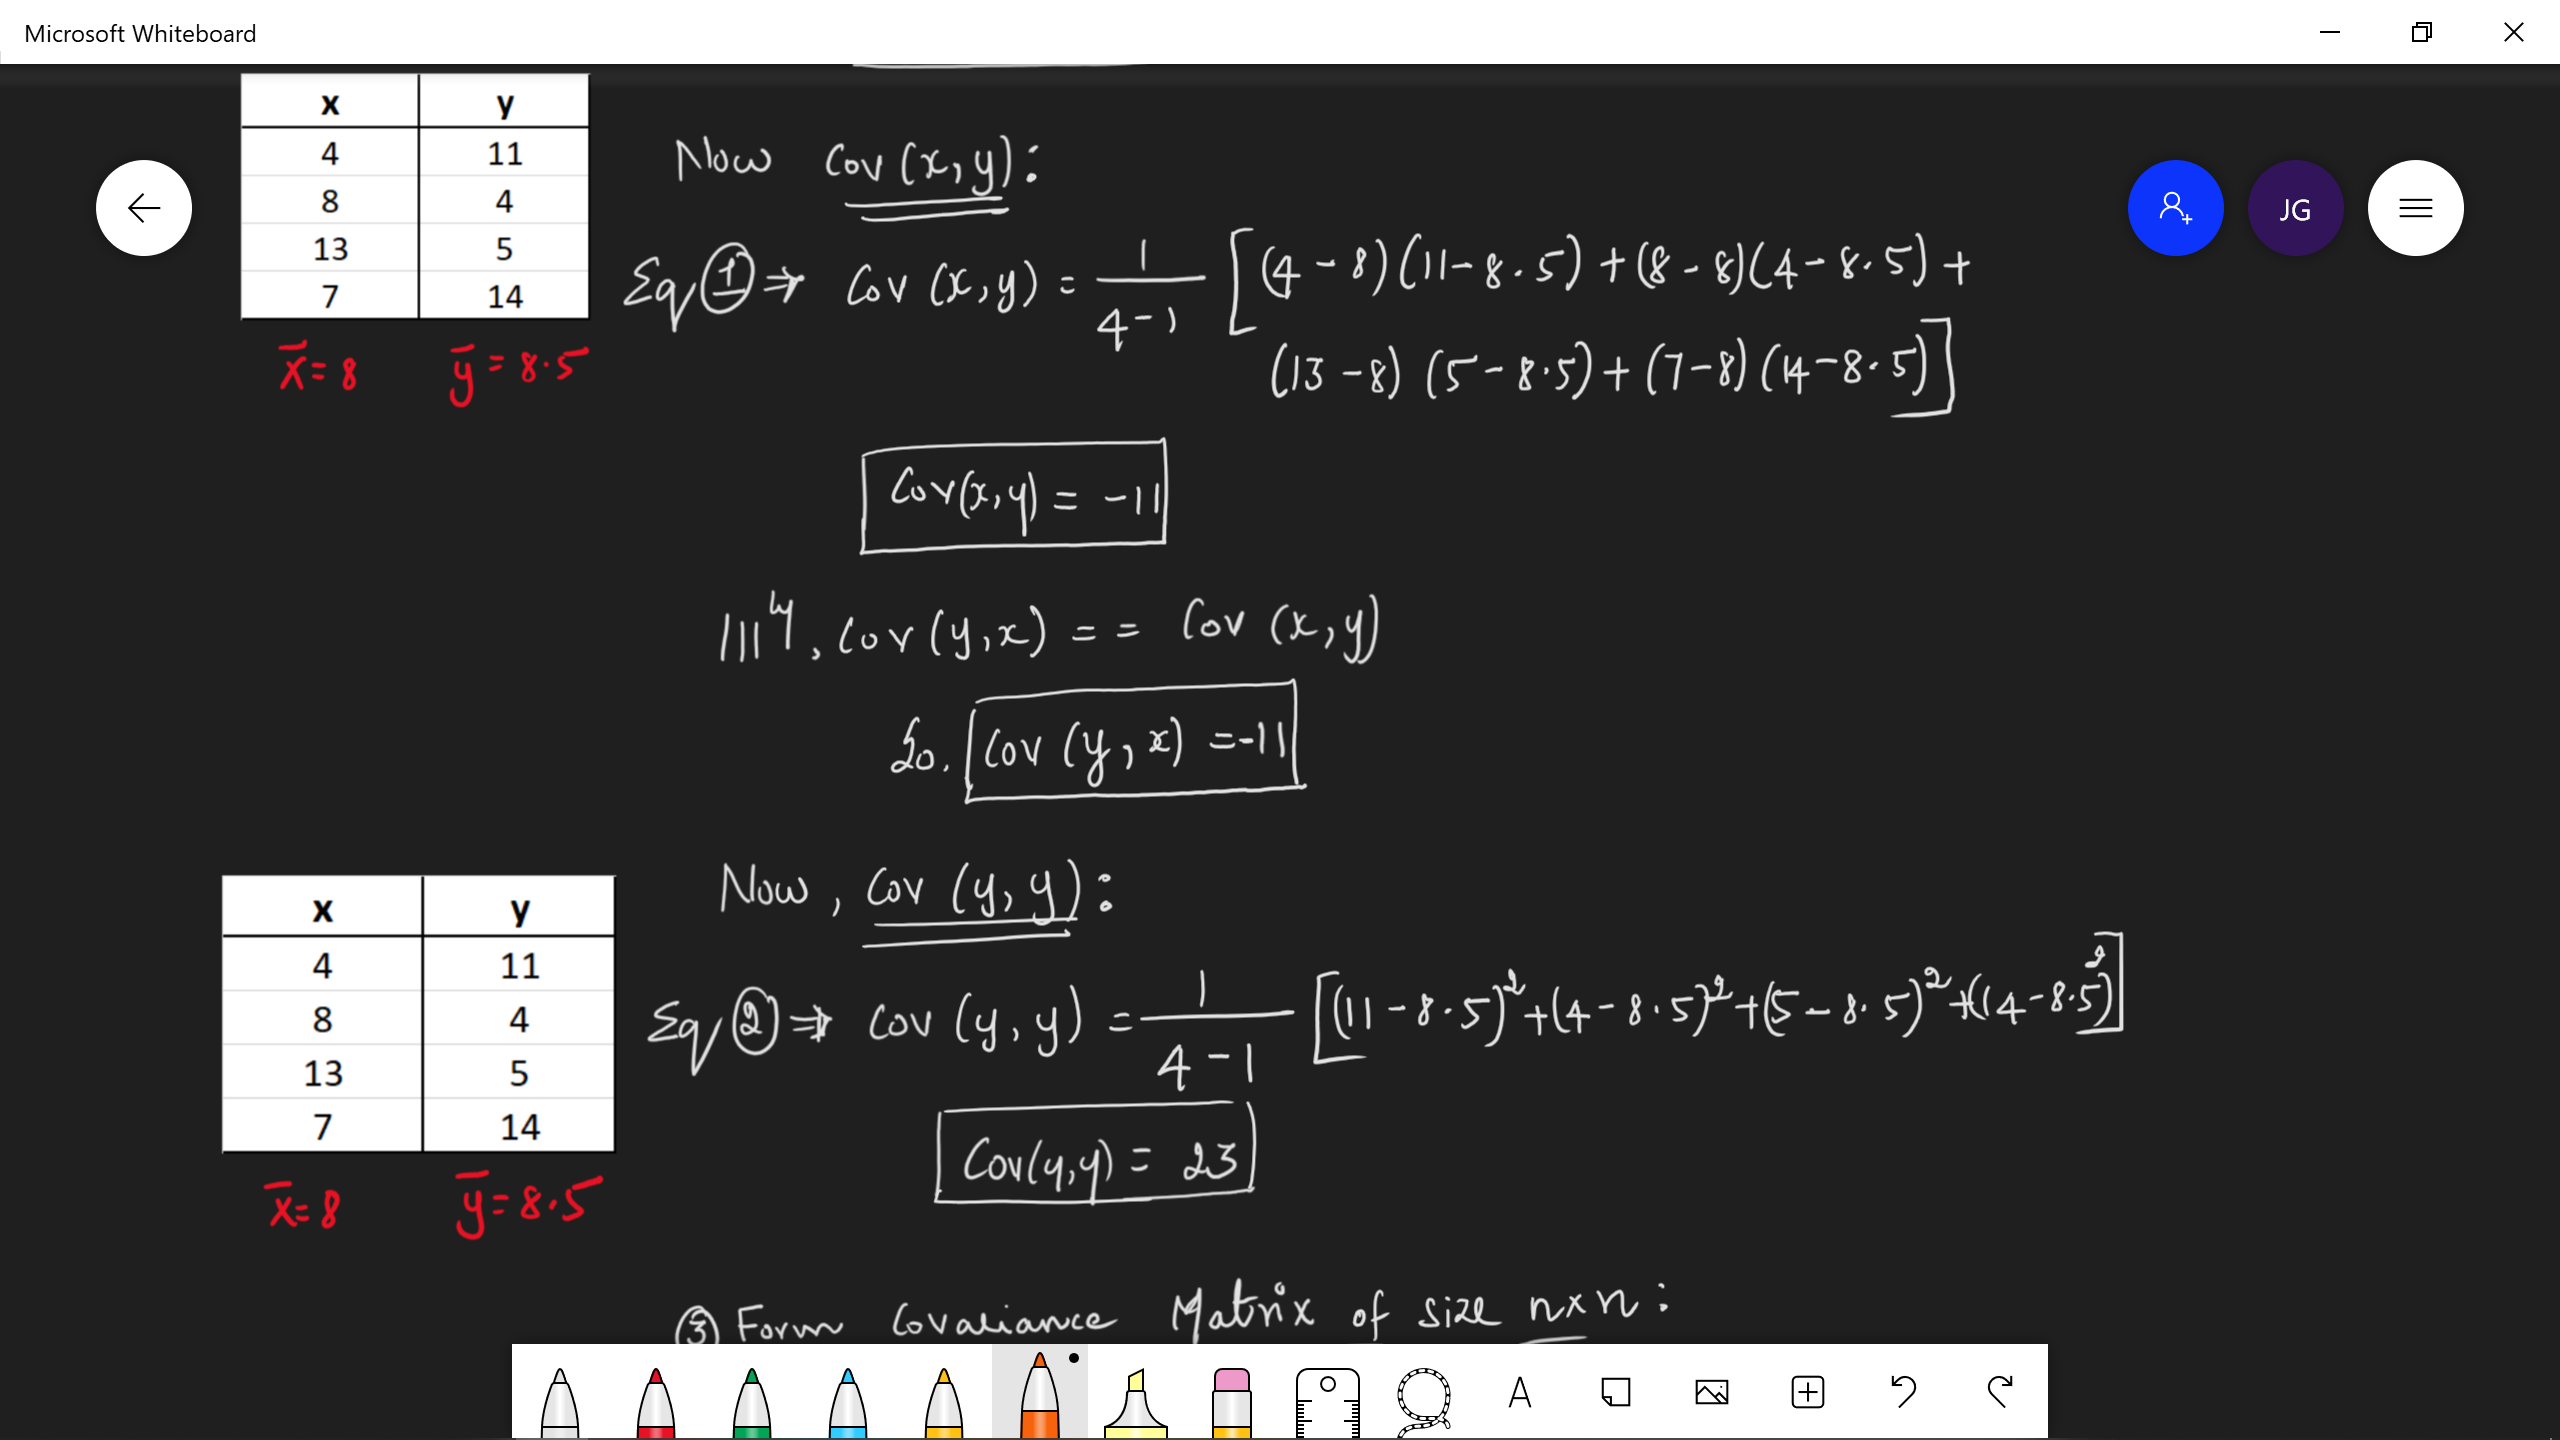 Microsoft Whiteboard
x y
4 11
8 4
13 5
7 14
x̄ = 8 ȳ = 8.5
Now Cov (x, y) :
Eq ① ⇒ Cov (x, y) = 1/(4-1) [(4 - 8)(11 - 8.5) + (8 - 8)(4 - 8.5) +
(13 - 8) (5 - 8.5) + (7 - 8) (14 - 8.5)]
Cov(x, y) = -11
|||ly, Cov (y, x) = = Cov (x, y)
So. Cov (y, x) = -11
JG
x y
4 11
8 4
13 5
7 14
x̄ = 8 ȳ = 8.5
Now, Cov (y, y) :
Eq ② ⇒ Cov (y, y) = 1/(4-1) [(11 - 8.5)² + (4 - 8.5)² + (5 - 8.5)² + (14 - 8.5)²]
Cov(y, y) = 23
③ Form Covariance Matrix of size n×n :